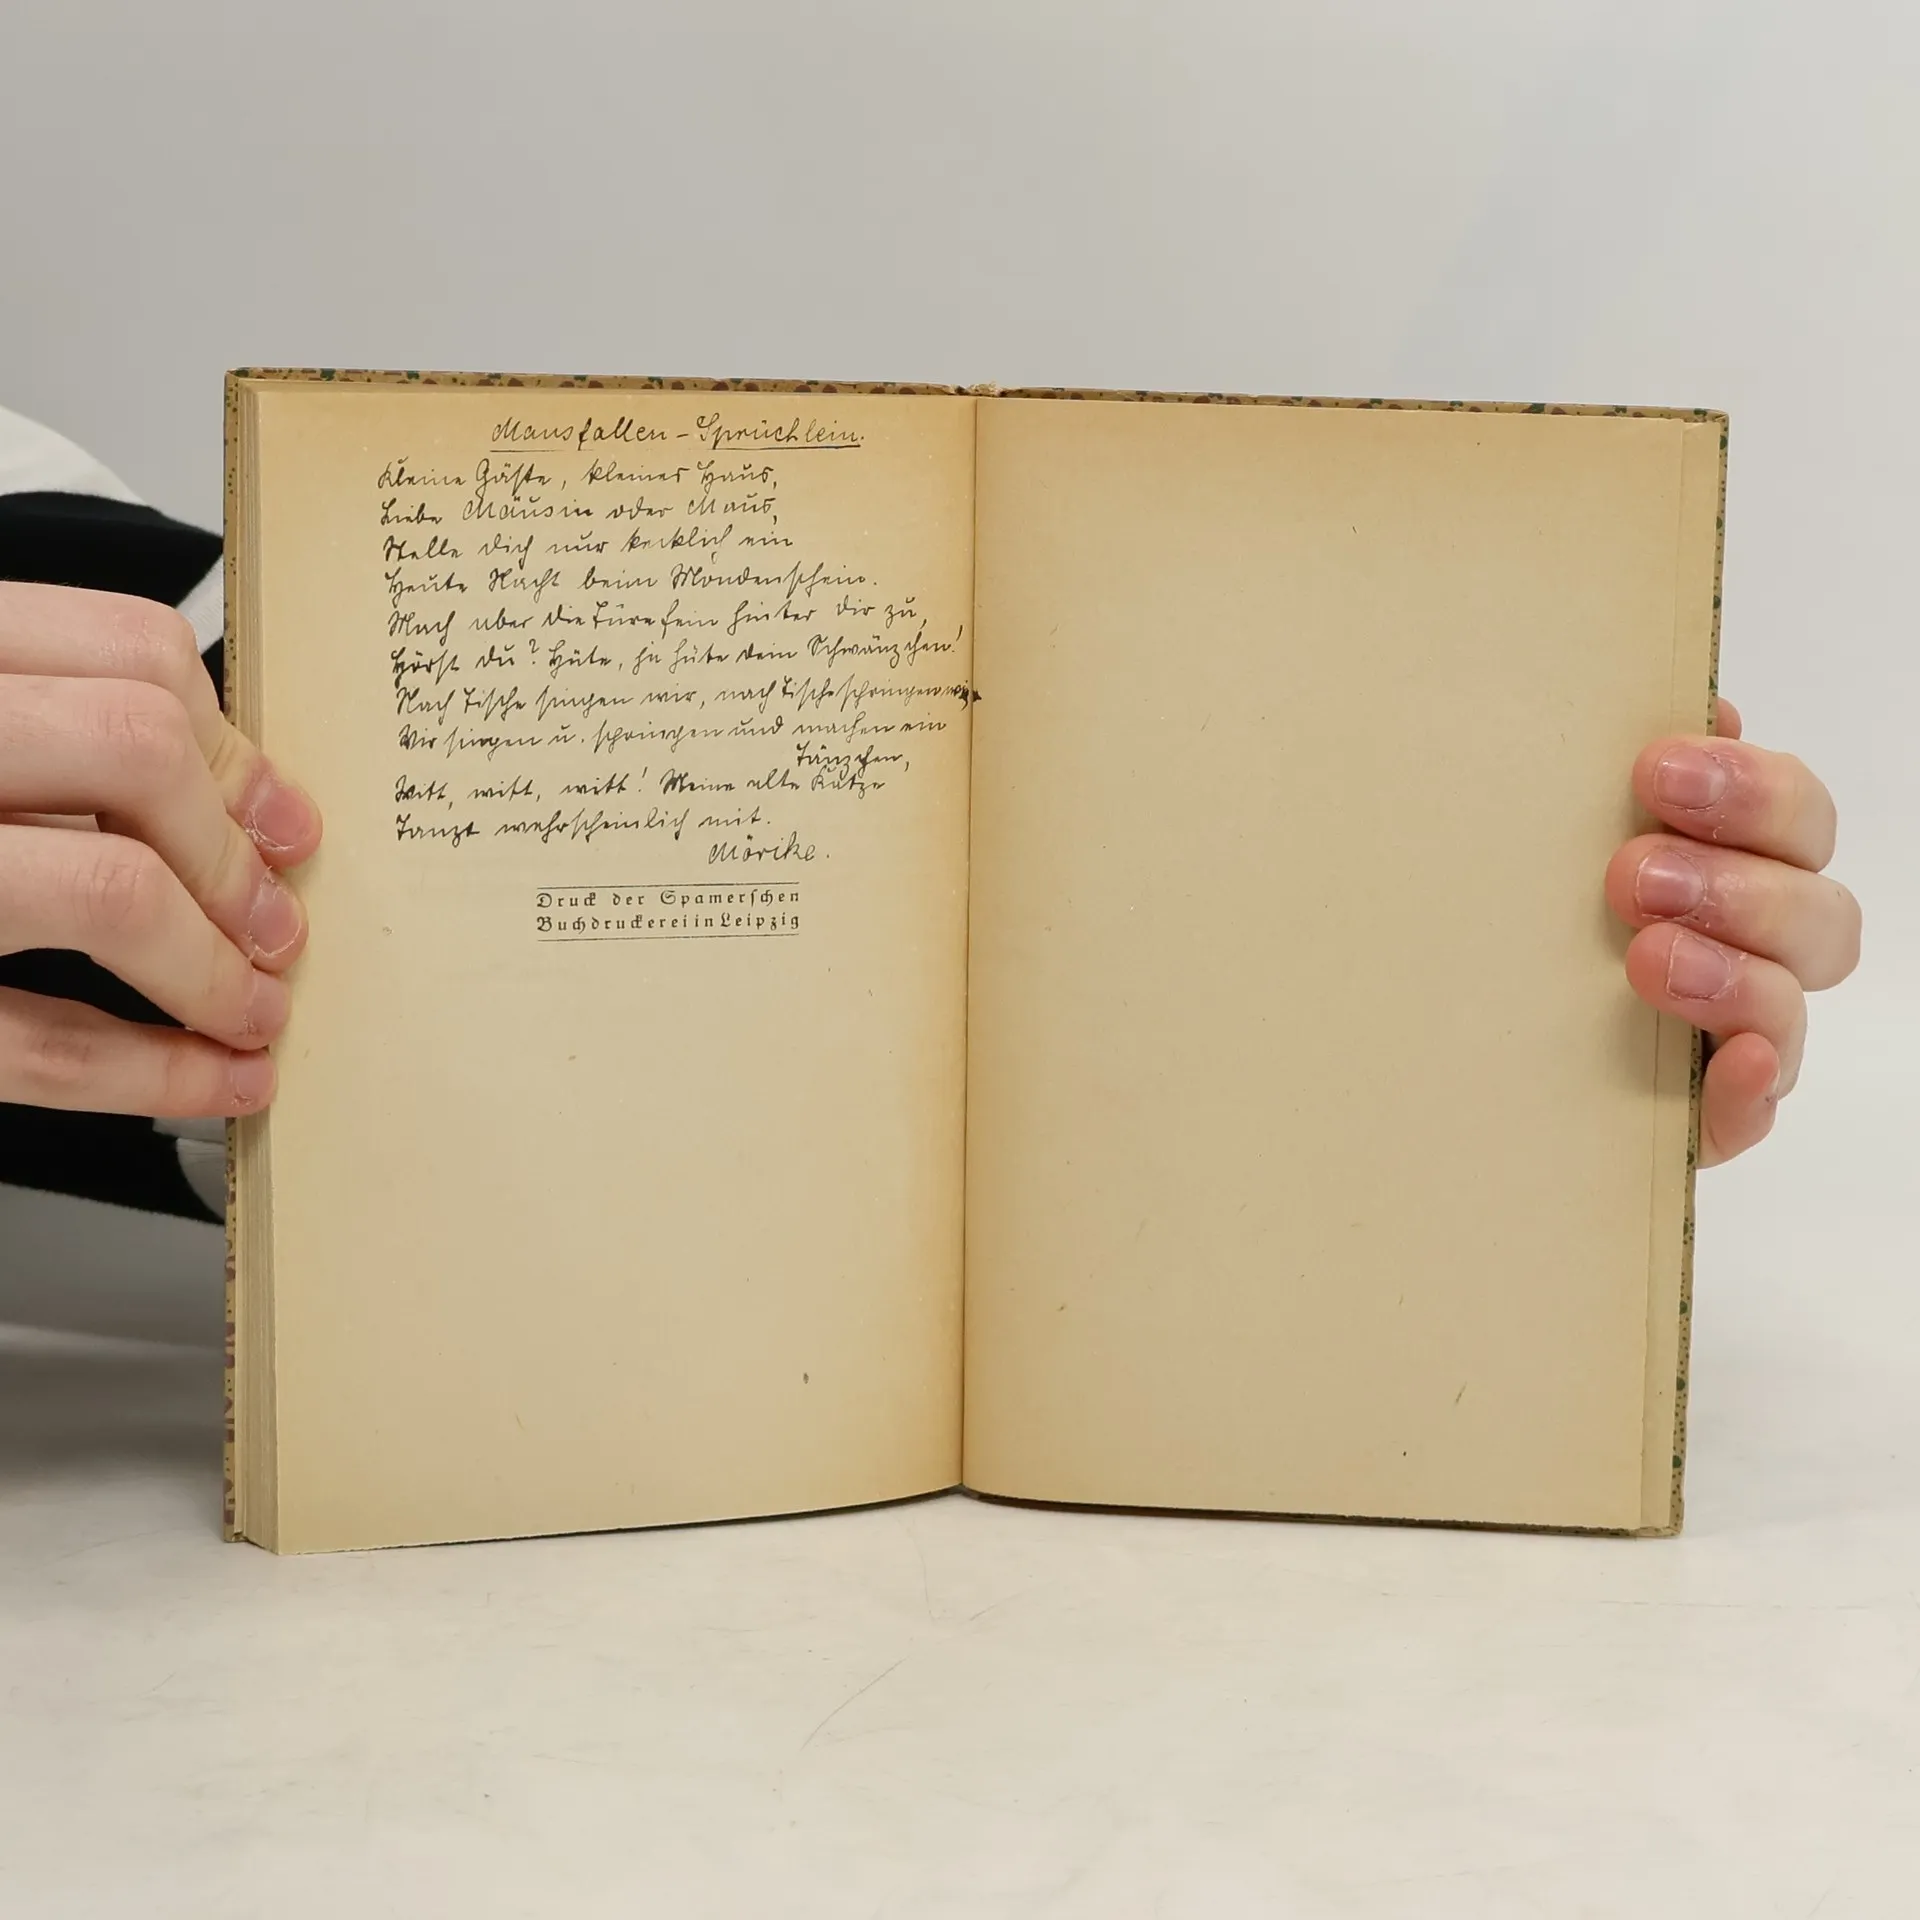 Mausfallen-Sprüchlein.
Kleine Gäste, kleines Haus,
Liebe Mäusin oder Maus,
Stelle dich nur kecklich ein
Heute Nacht beim Mondenschein.
Mach aber die Türe fein hinter dir zu,
Hörst du? Hüte, ja hüte dein Schwänzchen!
Nach Tische singen wir, nach Tische springen wir
Wir singen u. springen und machen ein
Tänzchen,
Witt, witt, witt! Meine alte Katze
Tanzt wahrscheinlich mit.
Mörike.
Druck der Spamerschen
Buchdruckerei in Leipzig